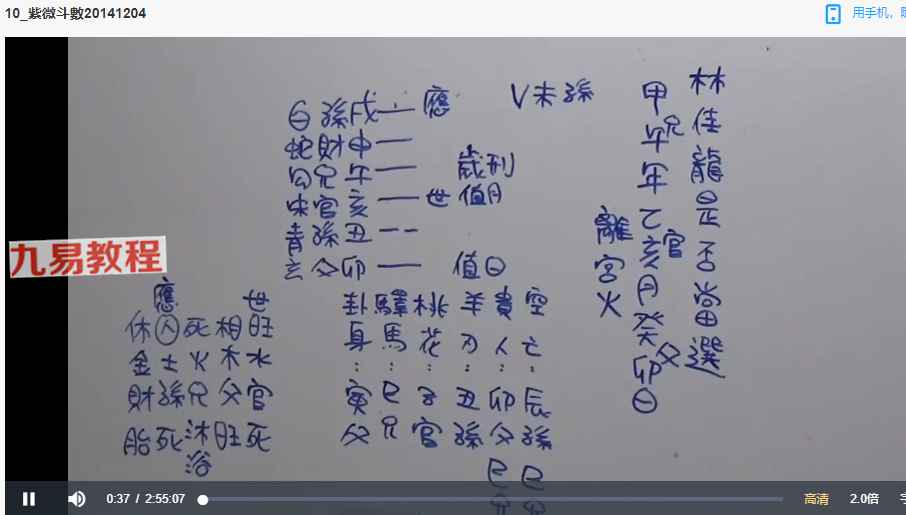 10_紫微斗數20141204
用手机，
林佳龍是否當選
甲午年乙亥月癸卯日
兄
官
父
離宮火
V未孫
白孫戌一應
蛇財申一
勾兄午一
歲刑
朱官亥一世
值月
青孫丑--
玄父卯一
值日
九易教程
應 世
休囚死相旺
金土火木水
財孫兄父官
胎死沐浴旺死
卦驛桃羊貴空
身馬花刃人亡
: : : : : :
寅巳子丑卯辰
父兄官孫父孫
巳巳
0:37 / 2:55:07
高清
2.0倍
字